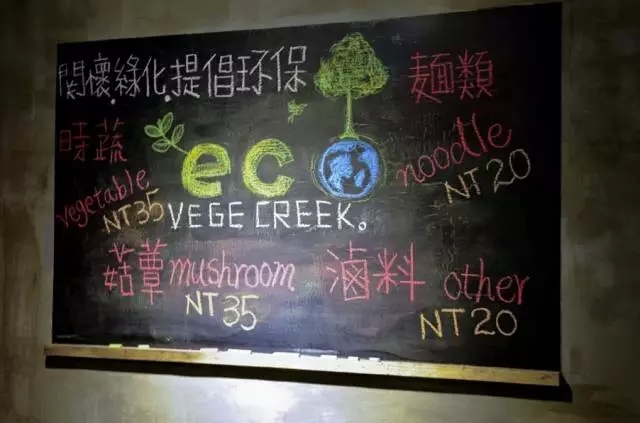 関懷.綠化.提倡环保
麵類
時蔬
eco
noodle
NT20
vegetable
NT35
VEGE CREEK.
菇蕈 mushroom
NT35
滷料 other
NT20